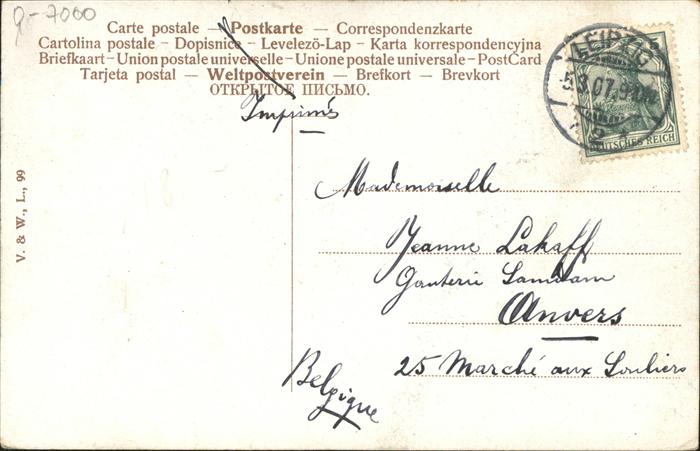 Carte postale – Postkarte – Correspondenzkarte
Cartolina postale – Dopisnice – Levelező-Lap – Karta korrespondencyjna
Briefkaart – Union postale universelle – Unione postale universale – PostCard
Tarjeta postal – Weltpostverein – Brefkort – Brevkort
ОТКРЫТОЕ ПИСЬМО.
Imprimés
LEIPZIG
5.3.07.
DEUTSCHES REICH
V. & W., L., 99
Mademoiselle
Jeanne Lakaff
Ganterie Samdam
Anvers
25 Marché aux Souliers
Belgique